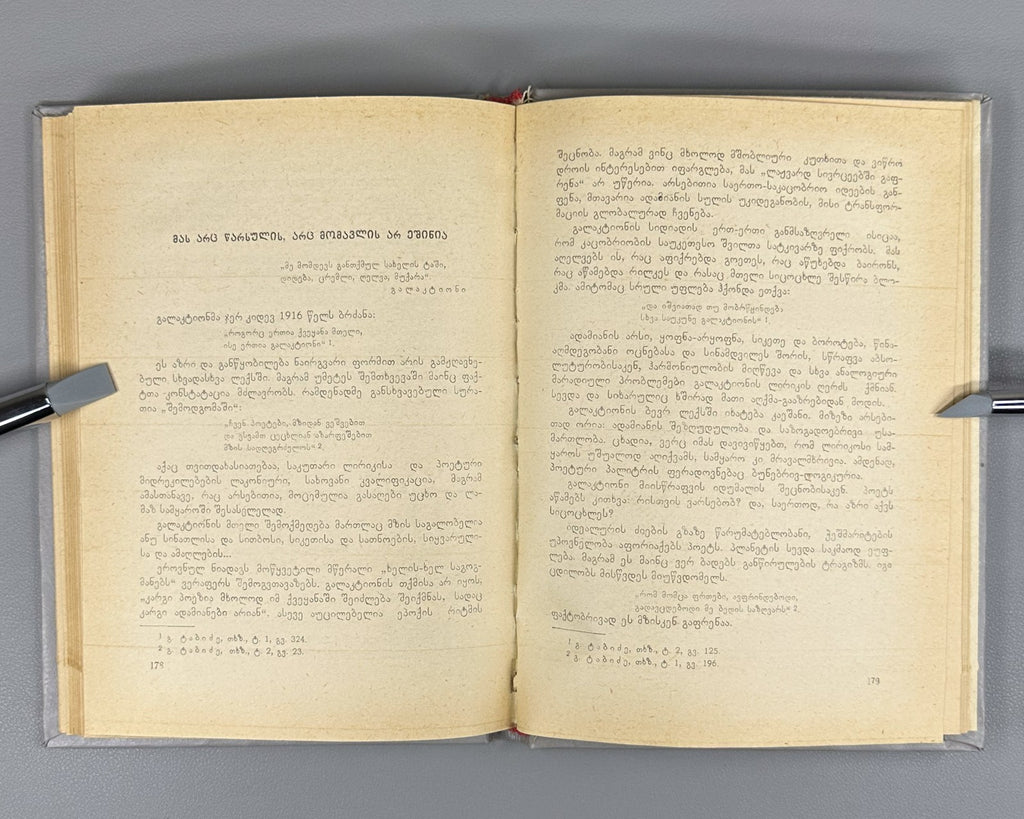 მას არც წარსულის, არც მომავლის არ ეშინია
„მე მომდევს განთქმულ სახელის ტაში,
დიდება, ცრემლი, ღელვა, მუქარა“.
გალაკტიონი
გალაკტიონმა ჯერ კიდევ 1916 წელს ბრძანა:
„როგორც ერთია ქვეყანა მთელი,
ისე ერთია გალაკტიონი“ 1.
ეს აზრი და განწყობილება ნაირგვარი ფორმით არის გამჟღავნე-
ბული სხვადასხვა ლექსში. მაგრამ უმეტეს შემთხვევაში მაინც ფაქ-
ტთა კონსტატაცია მძლავრობს. რამდენადმე განსხვავებული სურა-
თია „შემოდგომაში“:
„ჩვენ პოეტები, მზიდან ვეშვებით
და ვსვამთ ცეცხლიან აზარფეშებით
მზის სადღეგრძელოს“ 2.
აქაც თვითდახასიათებაა, საკუთარი ლირიკისა და პოეტური
მიდრეკილებების ლაკონიური, სახოვანი კვალიფიკაცია, მაგრამ
ამასთანავე, რაც არსებითია, მოცემულია გასაღები უცხო და ლა-
მაზ სამყაროში შესასვლელად.
გალაკტიონის მთელი შემოქმედება მართლაც მზის საგალობელია
ანუ სინათლისა და სითბოსი, სიკეთისა და სათნოების, სიყვარული-
სა და ამაღლების...
ეროვნულ ნიადაგს მოწყვეტილი მწერალი „ხელის-ხელ საგოგ-
მანებს“ ვერაფერს შემოგვთავაზებს. გალაკტიონის თქმისა არ იყოს,
„კარგი პოეზია მხოლოდ იმ ქვეყანაში შეიძლება შეიქმნას, სადაც
კარგი ადამიანები არიან“. ასევე აუცილებელია ეპოქის რიტმის
1 გ. ტაბიძე, თხზ., ტ. 1, გვ. 324.
2 გ. ტაბიძე, თხზ., ტ. 2, გვ. 23.
178
შეცნობა. მაგრამ ვინც მხოლოდ მშობლიური კუთხითა და ვიწრო
დროის ინტერესებით იფარგლება, მას „ლაჟვარდ სივრცეებში გაფ-
რენა“ არ უწერია. არსებითია საერთო-საკაცობრიო იდეების გან-
ფენა, მთავარია ადამიანის სულის უკიდეგანობის, მისი ტრანსფორ-
მაციის გლობალურად ჩვენება.
გალაკტიონის სიდიადის ერთ-ერთი განმსაზღვრელი ისიცაა,
რომ კაცობრიობის საუკეთესო შვილთა სატკივარზე ფიქრობს. მას
აღელვებს ის, რაც აფიქრებდა გოეთეს, რაც აწუხებდა ბაირონს,
რაც აწამებდა რილკეს და რასაც მთელი სიცოცხლე შესწირა ბლო-
კმა. ამიტომაც სრული უფლება ჰქონდა ეთქვა:
„და იშვიათად თუ მობრწყინდება,
სხვა საუკუნე გალაკტიონის“ 1.
ადამიანის არსი, ყოფნა-არყოფნა, სიკეთე და ბოროტება, წინა-
აღმდეგობანი ოცნებასა და სინამდვილეს შორის, სწრაფვა აბსო-
ლუტურობისაკენ, ჰარმონიულობის მიღწევა და სხვა ანალოგიური
მარადიული პრობლემები გალაკტიონის ლირიკის ღერძს ქმნიან.
სევდა და სიხარულიც ხშირად მათი აღქმა-გააზრებიდან მოდის.
გალაკტიონის ბევრ ლექსში იხატება კაეშანი. მიზეზი არსები-
თად ორია: ადამიანის შეზღუდულობა და საზოგადოებრივი უსა-
მართლობა. ცხადია, ვერც იმას დავივიწყებთ, რომ ლირიკოსი სამ-
ყაროს უშუალოდ აღიქვამს, სამყარო კი მრავალმხრივია. ამდენად,
პოეტური პალიტრის ფერადოვნებაც ბუნებრივ-ლოგიკურია.
გალაკტიონი მიისწრაფვის იდუმალის შეცნობისაკენ. პოეტს
აწამებს კითხვა: რისთვის ვარსებობ? და, საერთოდ, რა აზრი აქვს
სიცოცხლეს?
იდეალურის ძიების გზაზე წარუმატებლობანი, ჭეშმარიტების
უპოვნელობა აფორიაქებს პოეტს. პლანეტის სევდა საკმაოდ ეუფ-
ლება. მაგრამ ეს მაინც ვერ ბადებს განწირულების ტრაგიზმს. იგი
ცდილობს მისწვდეს მიუწვდომელს.
„რომ მომცა ფრთები, ავფრინდებოდი,
გადავცდებოდი მე ბედის საზღვარს“ 2.
ფაქტობრივად ეს მზისკენ გაფრენაა.
1 გ. ტაბიძე, თხზ., ტ. 2, გვ. 125.
2 გ. ტაბიძე, თხზ., ტ. 1, გვ. 196.
179